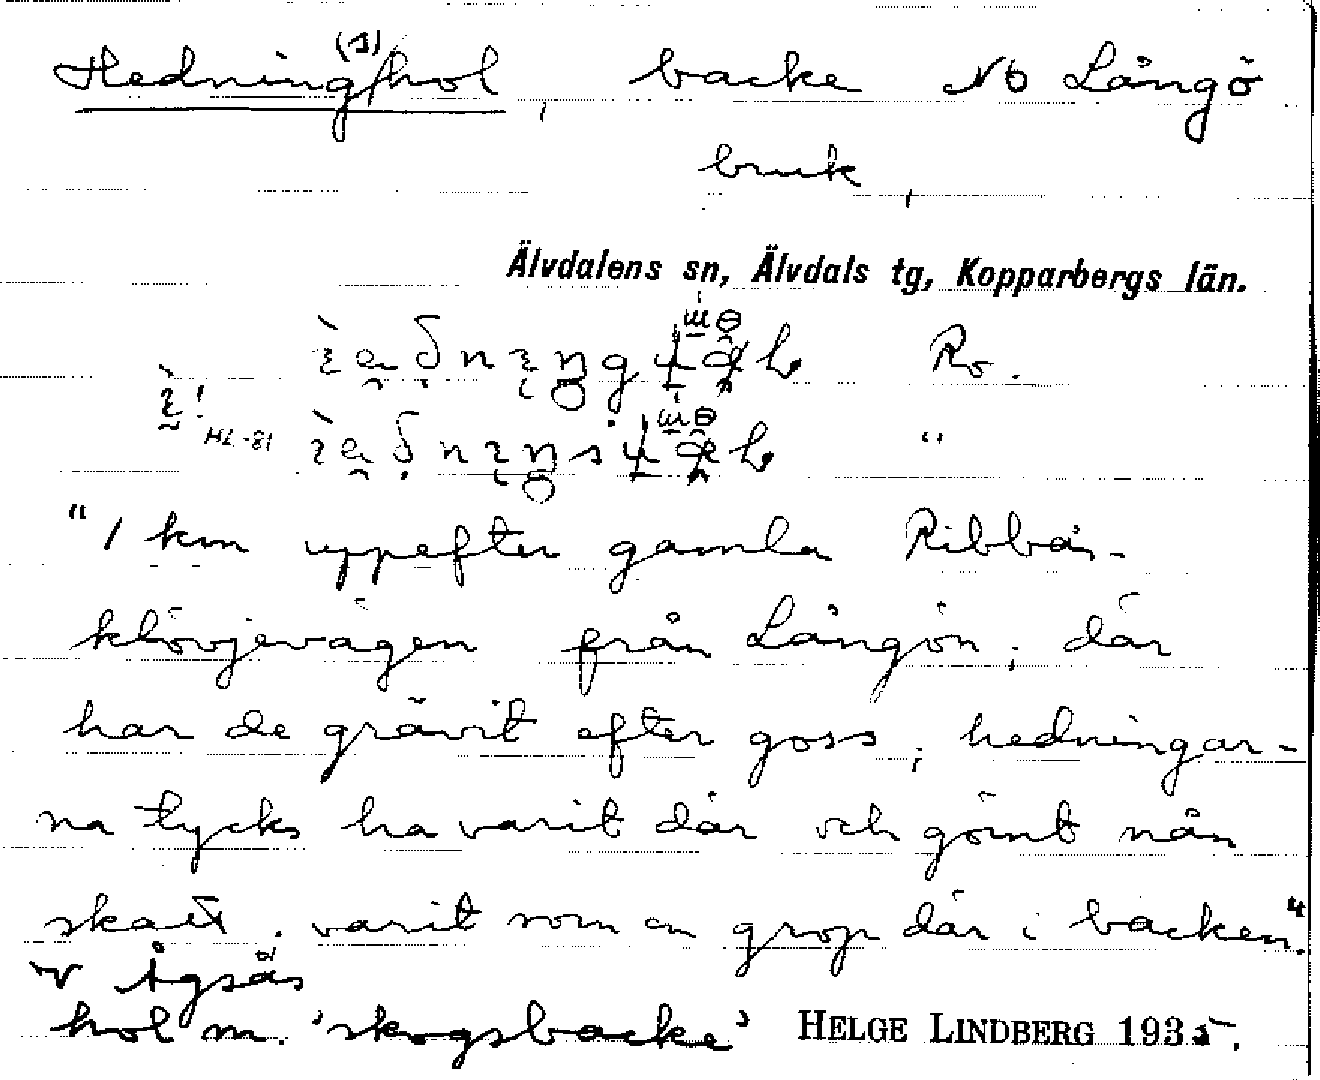 Hedning(s)hol, backe NO Långö
bruk,
Älvdalens sn, Älvdals tg, Kopparbergs län.
Ro.
HL-81
"
"1 km uppefter gamla Ribbås-
klövjevägen från Långön; där
har de grävit efter goss; hedningar-
na tycks ha varit där och gömt nån
skatt. varit som en grop där i backen."
v Ågsås
hol m. 'skogsbacke' HELGE LINDBERG 1935.